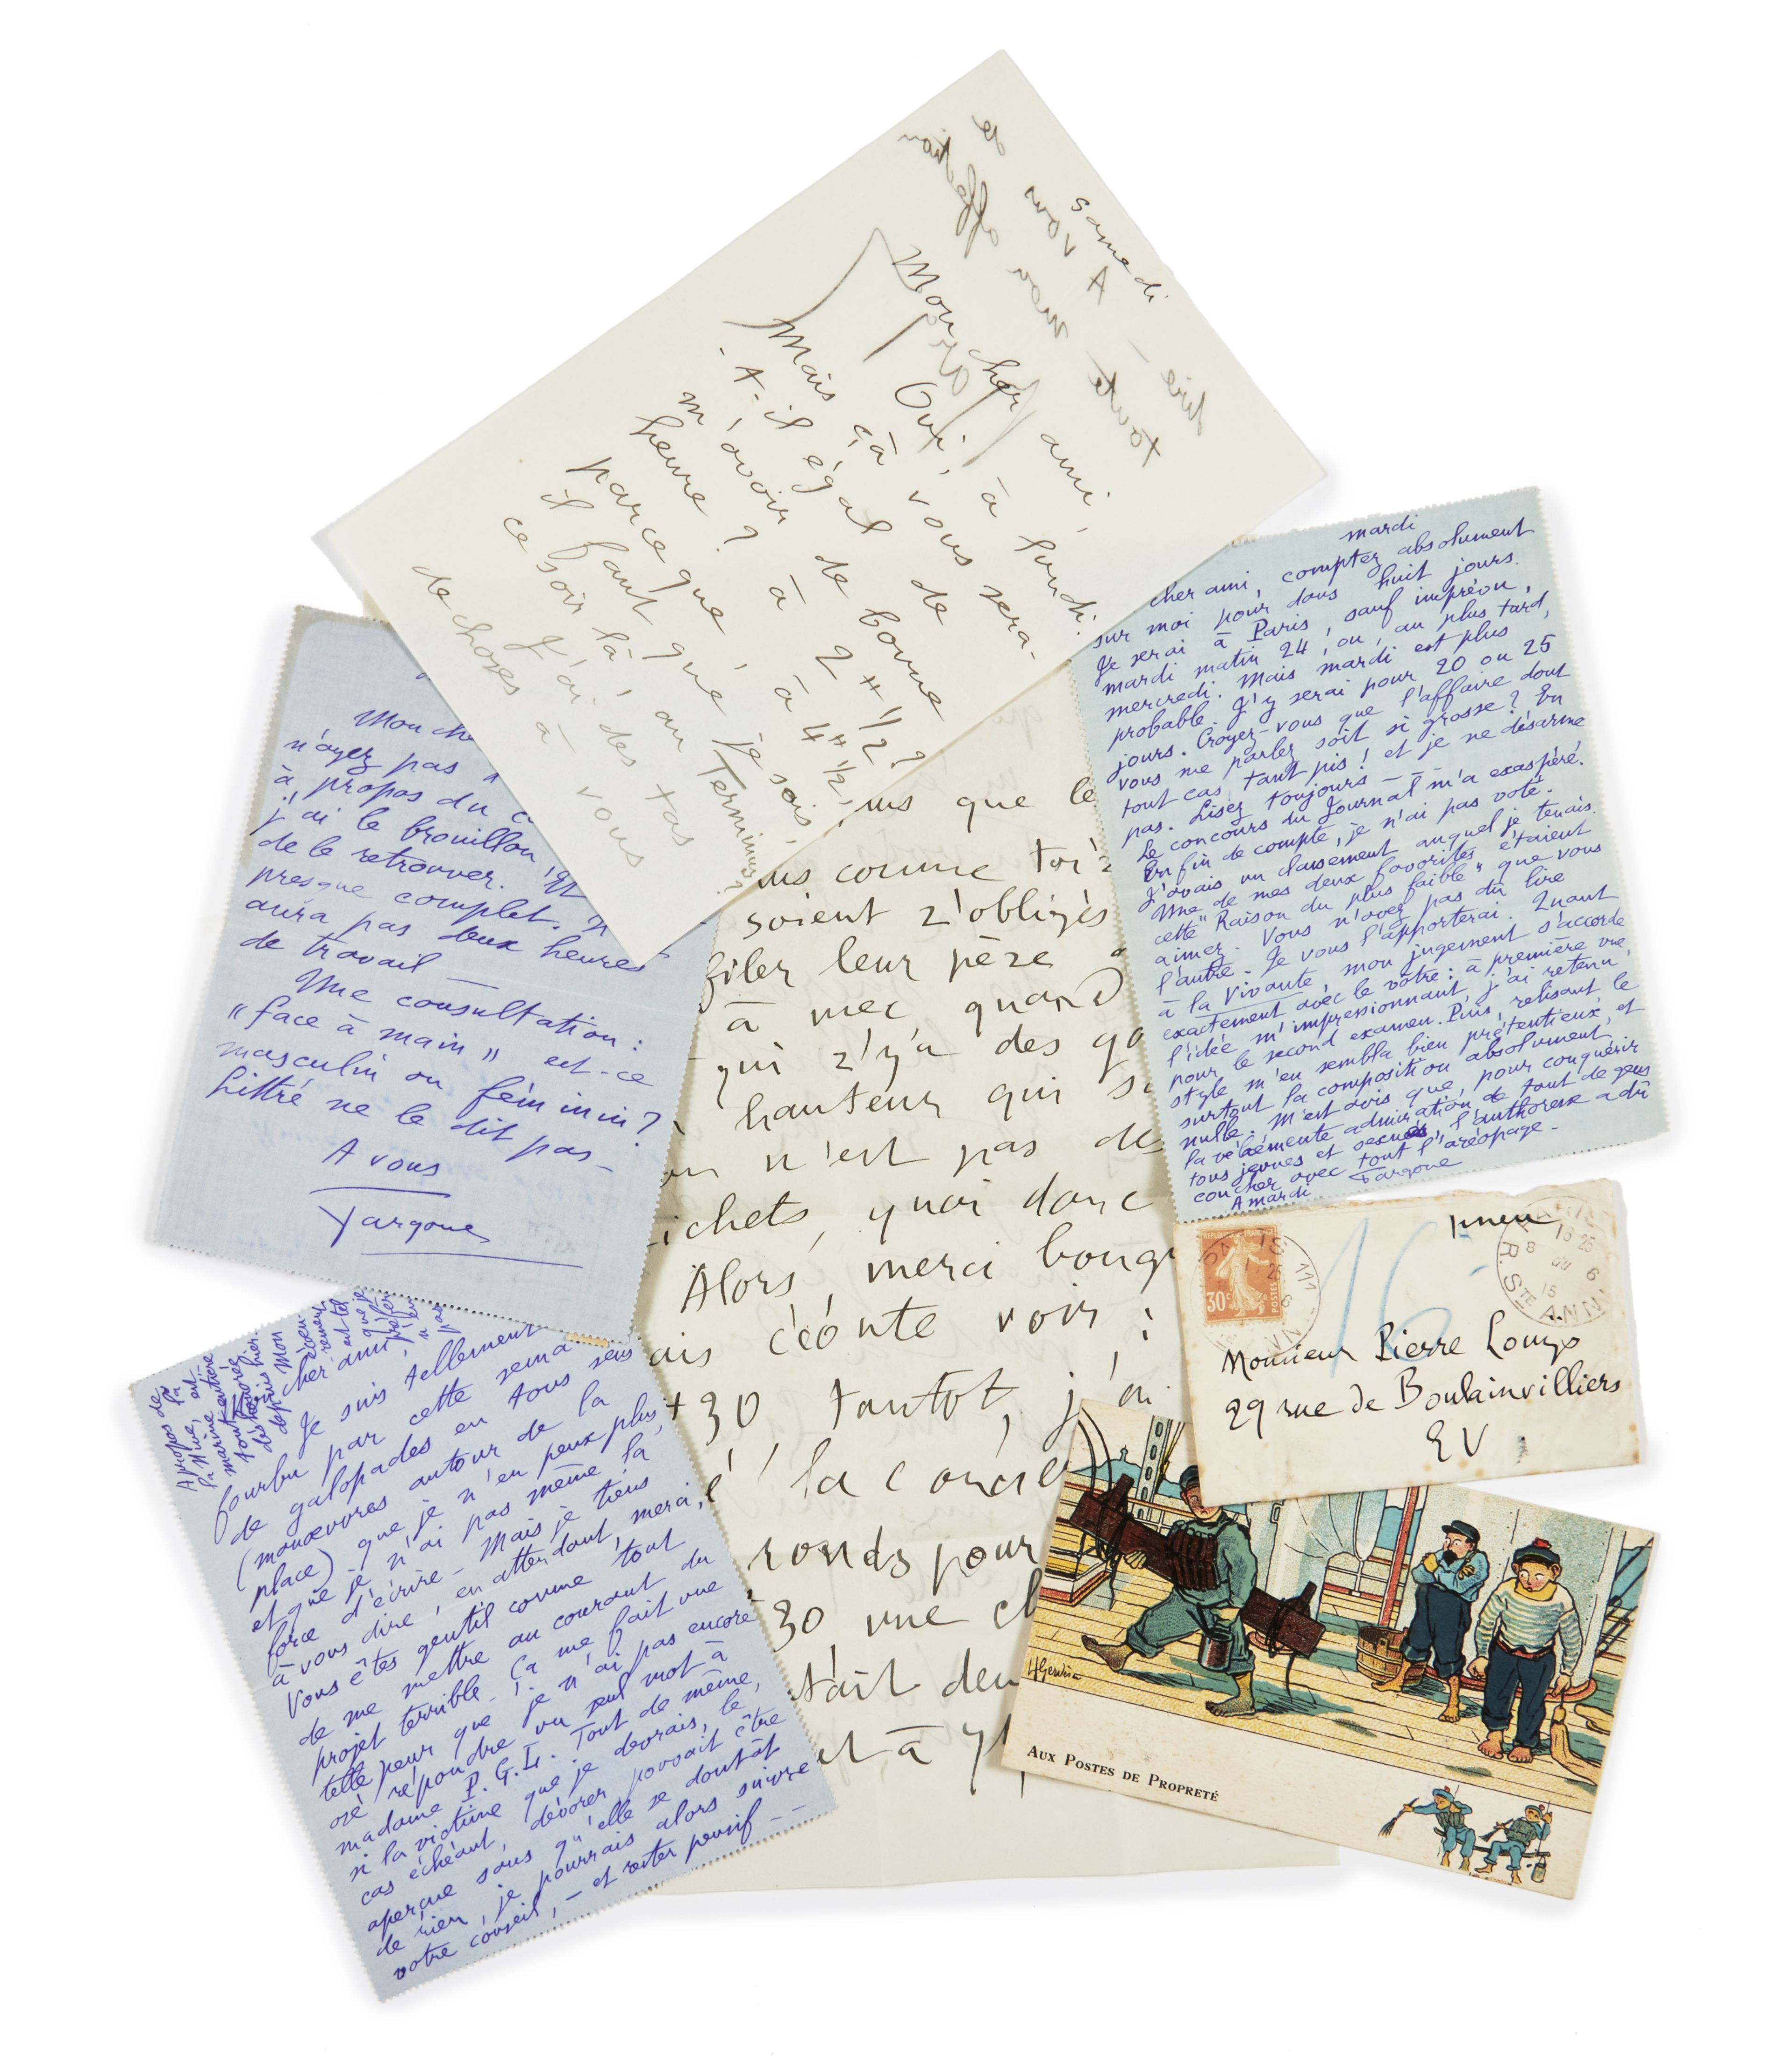 samedi
Mon cher ami,
Oui, à lundi.
Mais çà vous sera-
-t-il égal de
m'avoir de bonne
heure ? à 2 H 1/2 ?
parce que, à 4 H 1/2,
il faut que je sois,
ce soir là, au Terminus
J'ai des tas
de choses à vous
dire –
A vous
de
toute mon affection
mardi
cher ami, comptez absolument
sur moi pour dans huit jours.
Je serai à Paris, sauf imprévu,
mardi matin 24, ou, au plus tard,
mercredi. Mais mardi est plus
probable. J'y serai pour 20 ou 25
jours. Croyez-vous que l'affaire dont
vous me parlez soit si grosse ? En
tout cas, tant pis ! et je ne désarme
pas. Lisez toujours –
Le concours du Journal m'a exaspéré.
En fin de compte, je n'ai pas voté.
J'avais un classement auquel je tenais.
Une de mes deux favorites étaient
cette "Raison du plus faible" que vous
aimez. Vous n'avez pas dû lire
l'autre. Je vous l'apporterai. Quant
à la Vivante, mon jugement s'accorde
exactement avec le vôtre : à première vue,
l'idée m'impressionnant, j'ai retenu,
pour le second examen. Puis, relisant le
style m'en sembla bien prétentieux, et
surtout la composition absolument
nulle. M'est avis que, pour conquérir
la véhémente admiration de tant de gens
tous jeunes et sexués, l'authoress a dû
coucher avec tout l'aréopage –
A mardi Fargone
Mon che
n'ayez pas
à propos du
j'ai le brouillon,
de le retrouver. Et
presque complet.
aura pas deux heures
de travail –
Une consultation :
"face à main" est-ce
masculin ou féminin ?
Littré ne le dit pas –
A vous
Fargone
A propos de
la Mive, la
marine entière
est
depuis hier.
Mon
cher ami,
Je suis tellement
fourbu par cette sema
de galopades en tous sens
(manœuvres autour de la
place) que je n'en peux plus,
et que je n'ai pas même la
force d'écrire – Mais je tiens
à vous dire, en attendant, merci,
Vous êtes gentil comme tout
de me mettre au courant du
projet terrible –. Ça me fait une
telle peur que je n'ai pas encore
osé répondre un seul mot à
madame P. G. L. Tout de même,
si la victime que je devrais, le
cas échéant, dévorer, pouvait être
aperçue sans qu'elle se doutât
de rien, je pourrais alors suivre
votre conseil, – et rester pensif – –
ns que le
ns comme toi z
soient z'obligés
filer leur pèze
à mec quand
qui z'y'a des go
hauteur qui s
n'est pas de
ichets, quoi donc
Alors, merci boug
ais écoute voir :
+ 30 tantôt, j'ai
é la concie
ronds pour
30 une ch
tait deu
et à 7h
pneu
16
RÉPUBLIQUE FRANÇAISE
30c
POSTES
PARIS 111
R. STE ANNE
Monsieur Pierre Louÿs
29 rue de Boulainvilliers
EV
HGervèse
AUX POSTES DE PROPRETÉ